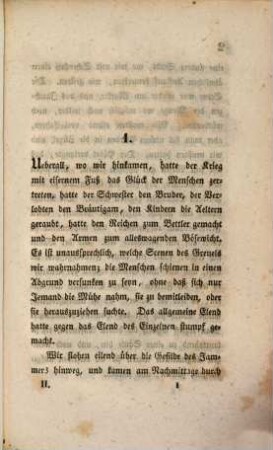 1.
Ueberall, wo wir hinkamen, hatte der Krieg
mit eisernem Fuß das Glück der Menschen zer-
treten, hatte der Schwester den Bruder, der Ver-
lobten den Bräutigam, den Kindern die Aeltern
geraubt, hatte den Reichen zum Bettler gemacht
und den Armen zum alleswagenden Bösewicht.
Es ist unaussprechlich, welche Scenen des Greuels
wir wahrnahmen; die Menschen schienen in einen
Abgrund versunken zu seyn, ohne daß sich nur
Jemand die Mühe nahm, sie zu bemitleiden, oder
sie herauszuziehen suchte. Das allgemeine Elend
hatte gegen das Elend des Einzelnen stumpf ge-
macht.
Wir flohen eilend über die Gefilde des Jam-
mers hinweg, und kamen am Nachmittage durch
II. 1